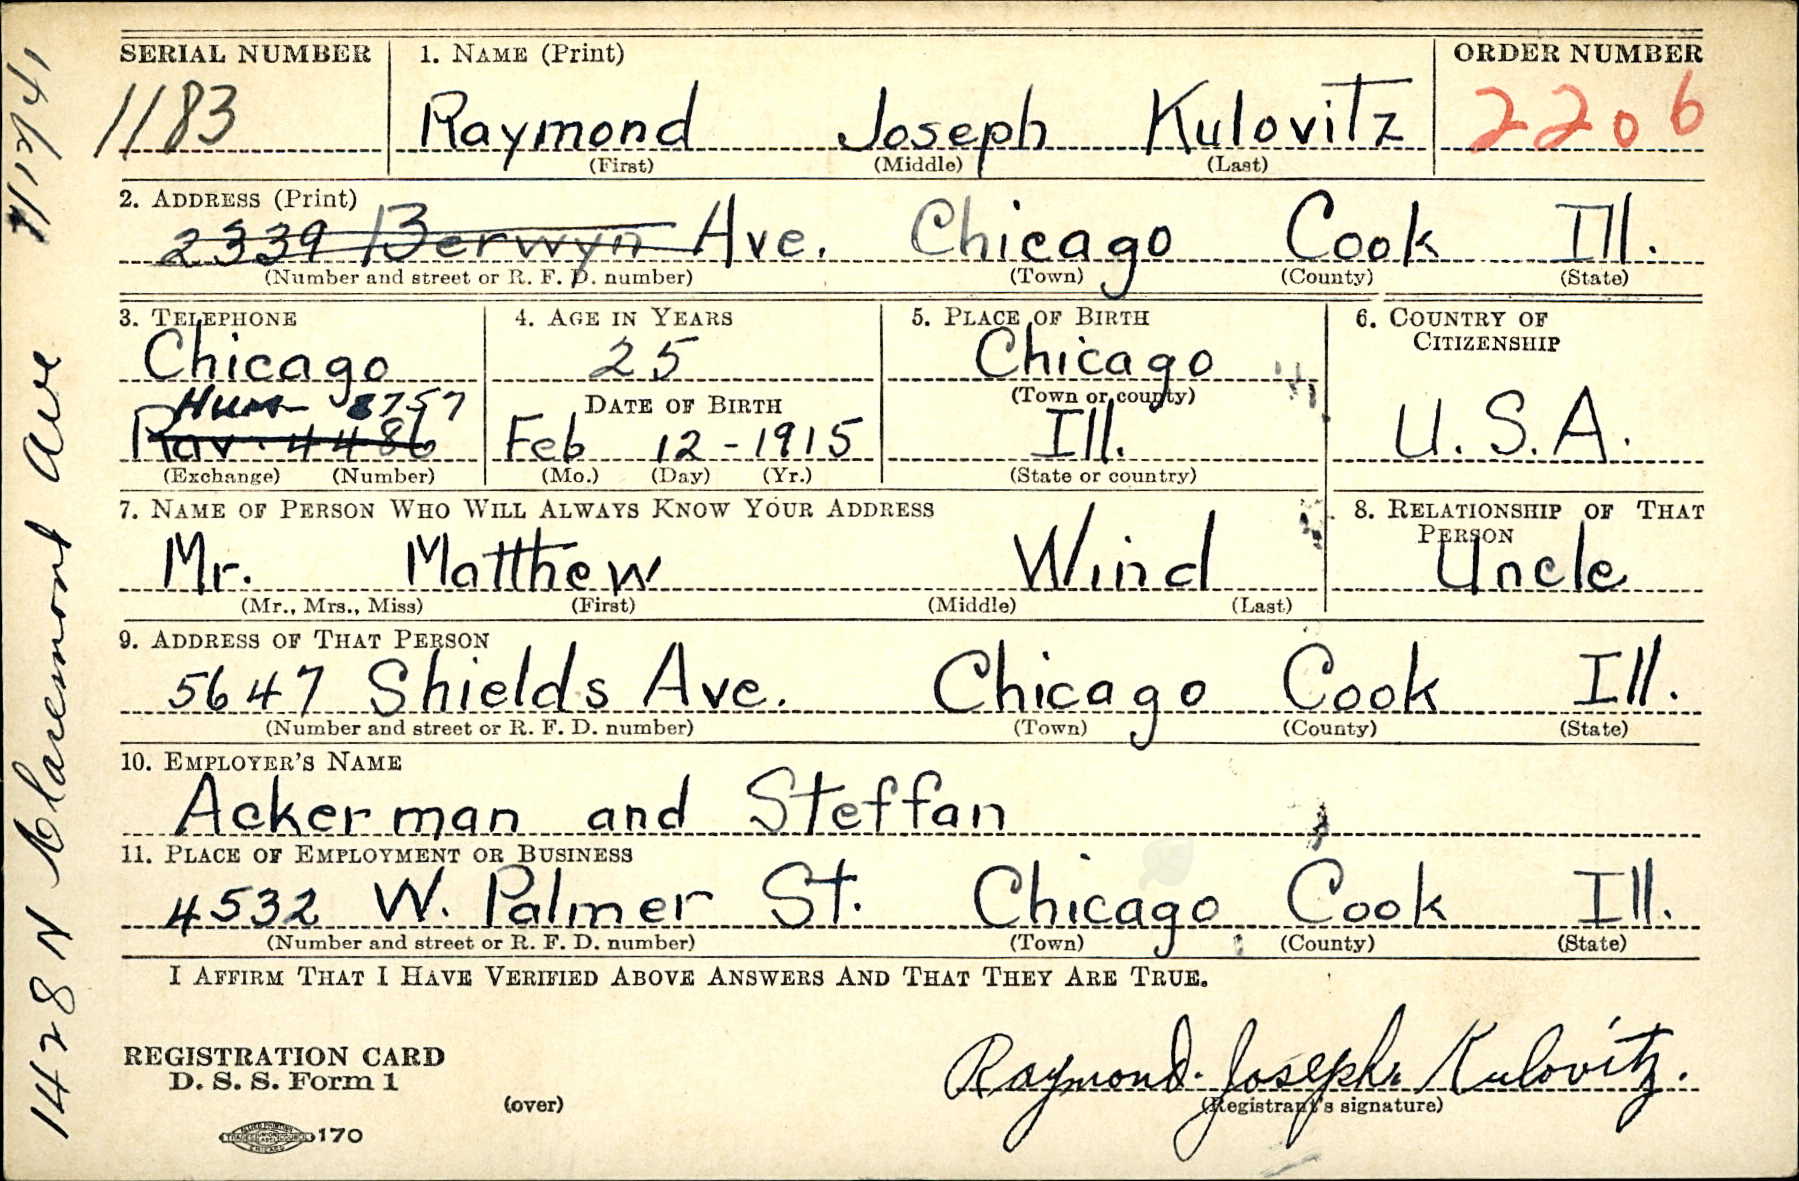 SERIAL NUMBER 1. NAME (Print) ORDER NUMBER
1183 Raymond Joseph Kulovitz 2206
(First) (Middle) (Last)
2. ADDRESS (Print)
2339 Berwyn Ave. Chicago Cook Ill.
(Number and street or R. F. D. number) (Town) (County) (State)
3. TELEPHONE 4. AGE IN YEARS 5. PLACE OF BIRTH 6. COUNTRY OF
CITIZENSHIP
Chicago 25 Chicago
Hum 8757 DATE OF BIRTH (Town or county)
Rav. 4486 Feb 12-1915 Ill. U.S.A.
(Exchange) (Number) (Mo.) (Day) (Yr.) (State or country)
7. NAME OF PERSON WHO WILL ALWAYS KNOW YOUR ADDRESS 8. RELATIONSHIP OF THAT
PERSON
Mr. Matthew Wind Uncle
(Mr., Mrs., Miss) (First) (Middle) (Last)
9. ADDRESS OF THAT PERSON
5647 Shields Ave. Chicago Cook Ill.
(Number and street or R. F. D. number) (Town) (County) (State)
10. EMPLOYER'S NAME
Ackerman and Steffan
11. PLACE OF EMPLOYMENT OR BUSINESS
4532 W. Palmer St. Chicago Cook Ill.
(Number and street or R. F. D. number) (Town) (County) (State)
I AFFIRM THAT I HAVE VERIFIED ABOVE ANSWERS AND THAT THEY ARE TRUE.
REGISTRATION CARD
D. S. S. Form 1
Raymond Joseph Kulovitz.
(over) (Registrant's signature)
170
1428 N Claremont Ave